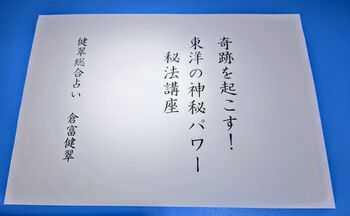 奇跡を起こす！
東洋の神秘パワー
秘法講座
健翠総合占い　倉富健翠